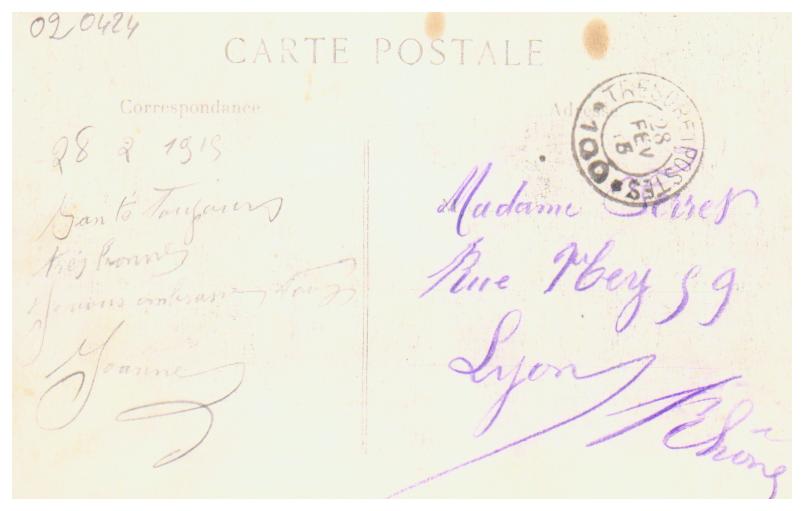 020424
CARTE POSTALE
Correspondance
TRESOR ET POSTES
*100*
28
FEV
15
28 2 1915
Santé Toujours
très bonne
Je vous embrasse tous
Joanne
Madame Serret
Rue Ney 59
Lyon
Rhône